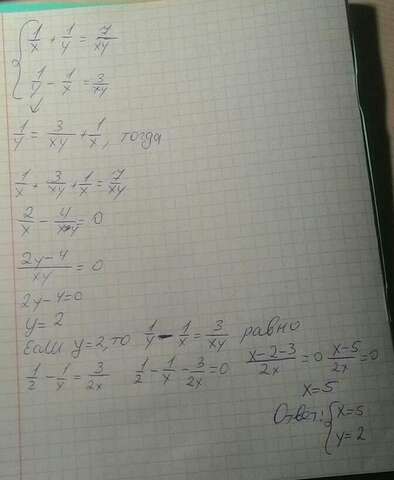 { 1/x + 1/y = 7/xy
1/y - 1/x = 3/xy
↓
1/y = 3/xy + 1/x, тогда
1/x + 3/xy + 1/x = 7/xy
2/x - 4/xy = 0
2y-4/xy = 0
2y-4=0
y = 2
Если y=2, то 1/y - 1/x = 3/xy равно
1/2 - 1/y = 3/2x 1/2 - 1/x - 3/2x = 0 x-2-3/2x = 0 x-5/2x = 0
x=5
Ответ: { x=5
y=2